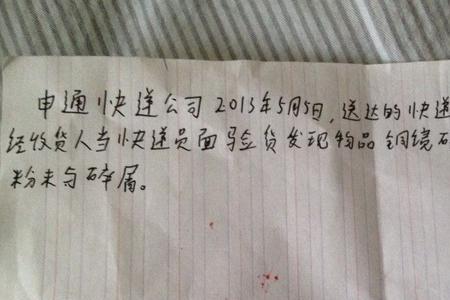 申通快递公司2013年5月5日,送达的快递
经收货人当快递员面验货发现物品铜镜
粉末与碎屑。